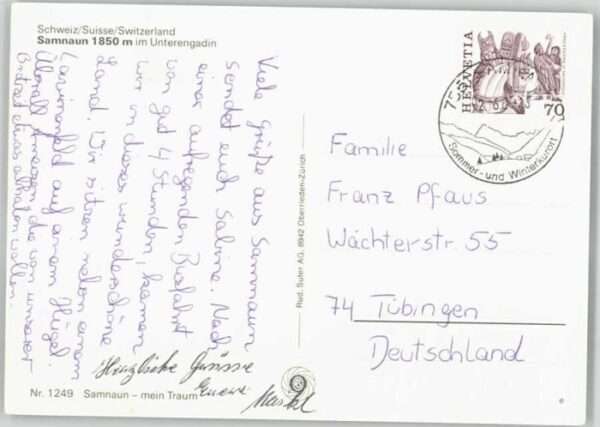 Schweiz/Suisse/Switzerland
Samnaun 1850 m im Unterengadin
Viele Grüße aus Samnaun
sendet euch Sabine. Nach
einer aufregenden Busfahrt
von gut 4 Stunden, kamen
wir in dieses wunderschöne
Land. Wir sitzen neben einem
auf einem Hügel.
Überall die von unserer
Herzliche Grüsse
Nr. 1249 Samnaun – mein Traum
Red. Suter AG, 8942 Oberrieden-Zürich
HELVETIA
70
Sommer- und Winterkurort
Familie
Franz Pfaus
Wächterstr. 55
74 Tübingen
Deutschland